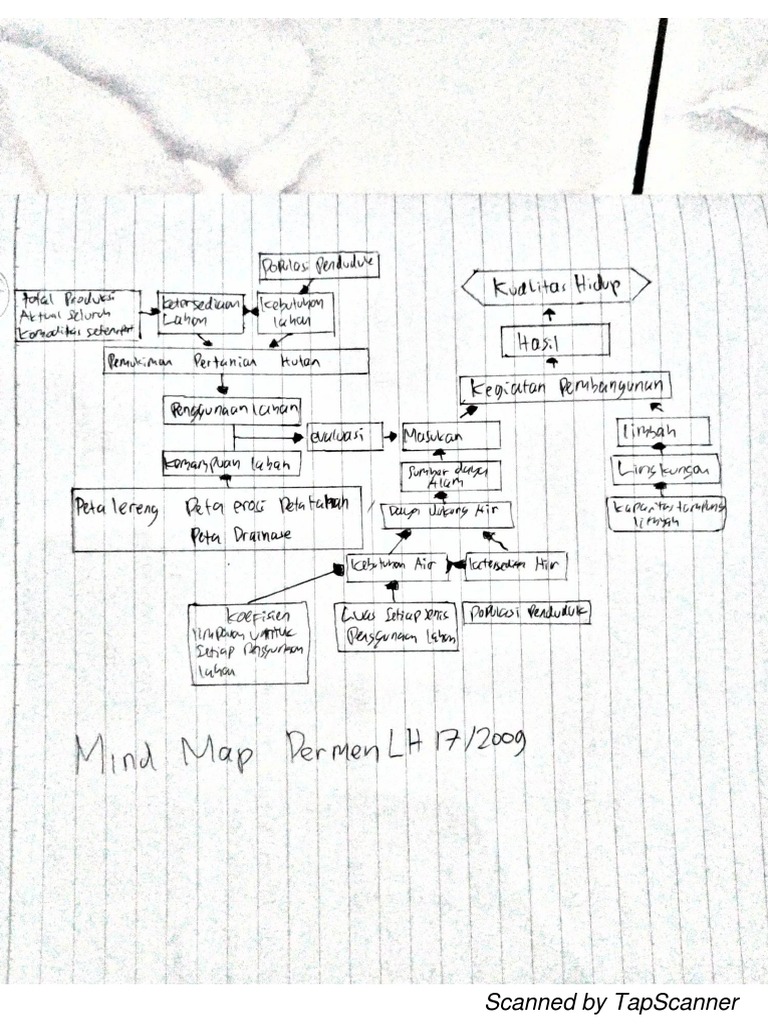 Populasi Penduduk
Total Produksi
Aktual Seluruh
Komoditas setempat
Ketersediaan
Lahan
Kebutuhan
lahan
Pemukiman Pertanian Hutan
Penggunaan Lahan
evaluasi
Kemampuan lahan
Peta lereng Peta erosi Peta tanah
Peta Drainase
Kualitas Hidup
Hasil
Kegiatan Pembangunan
Masukan
Sumber daya
Alam
Daya Dukung Air
Kebutuhan Air
Ketersediaan Air
limbah
Lingkungan
kapasitas tampung
limbah
Koefisien
limpasan untuk
Setiap Penggunaan
lahan
Luas Setiap jenis
Penggunaan Lahan
Populasi Penduduk
Mind Map Permen LH 17/2009
Scanned by TapScanner